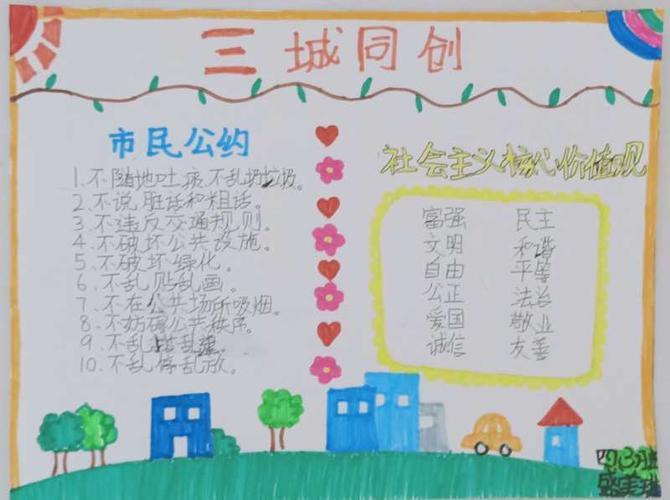 三城同创
市民公约
1.不随地吐痰,不乱扔垃圾。
2.不说脏话和粗话。
3.不违反交通规则。
4.不破坏公共设施。
5.不破坏绿化。
6.不乱贴乱画。
7.不在公共场所吸烟。
8.不妨碍公共秩序。
9.不乱搭乱建。
10.不乱停乱放。
社会主义核心价值观
富强 民主
文明 和谐
自由 平等
公正 法治
爱国 敬业
诚信 友善
四(3)班